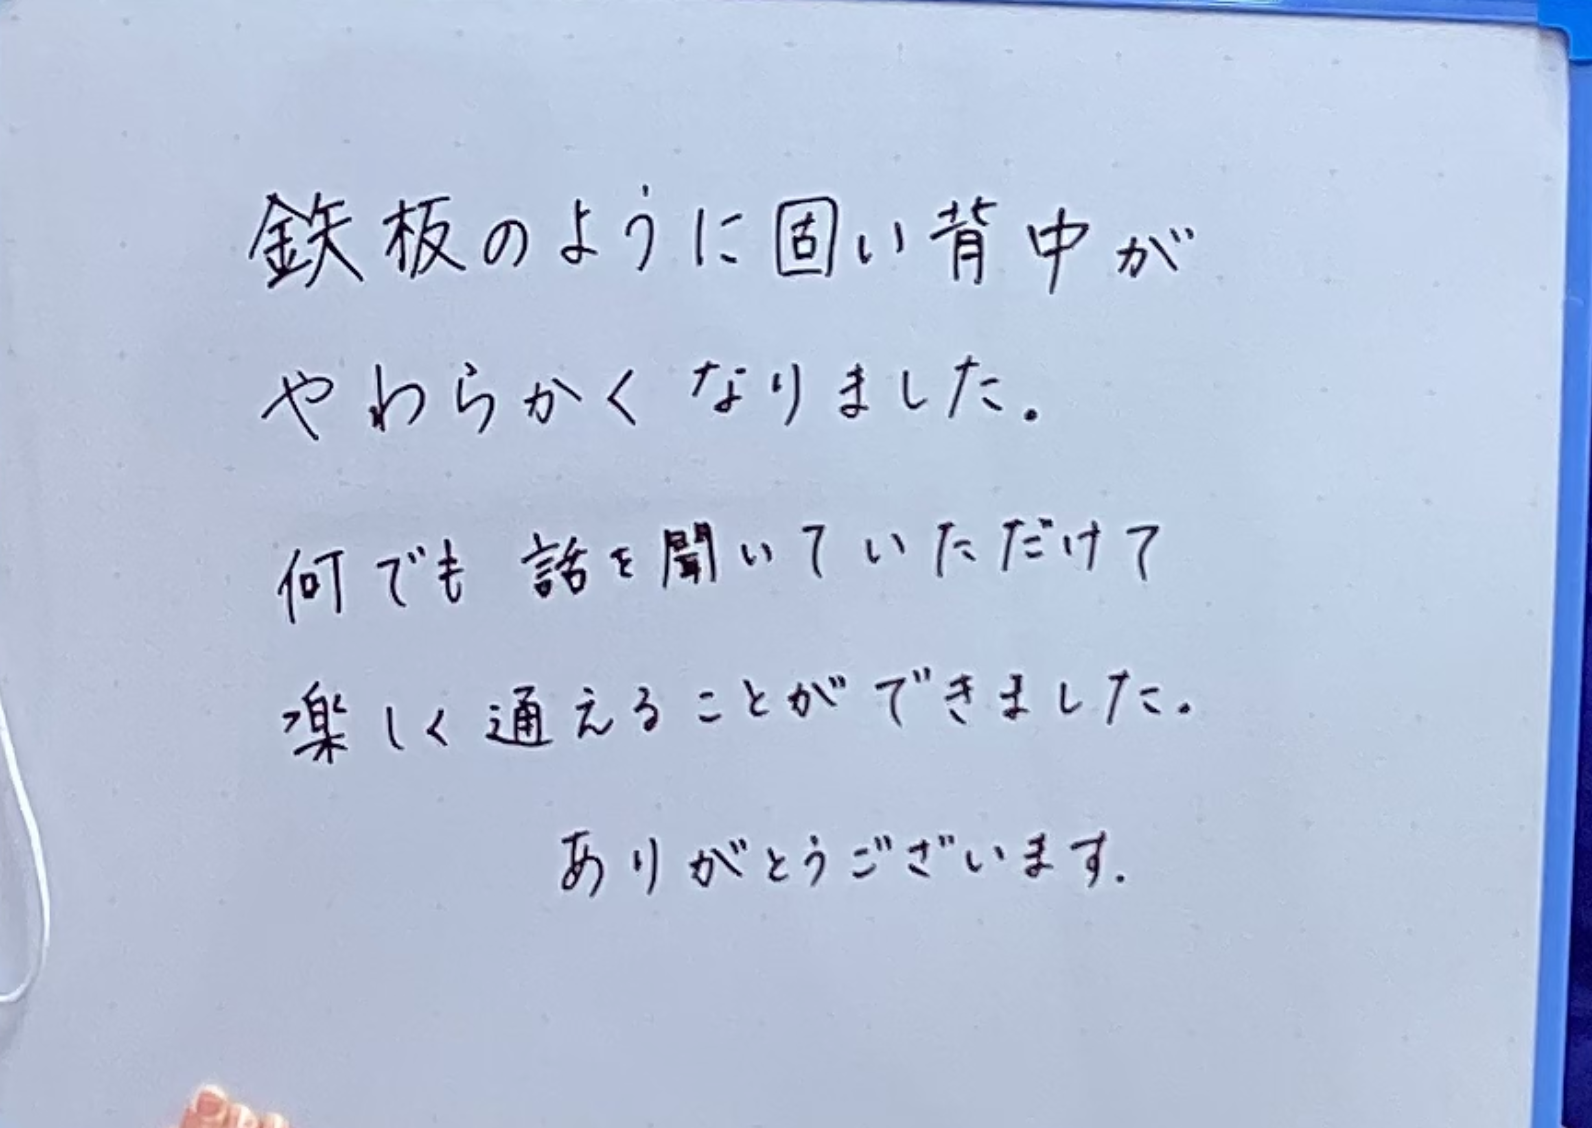 鉄板のように固い背中が
やわらかくなりました。
何でも話を聞いていただけて
楽しく通えることができました。
ありがとうございます.